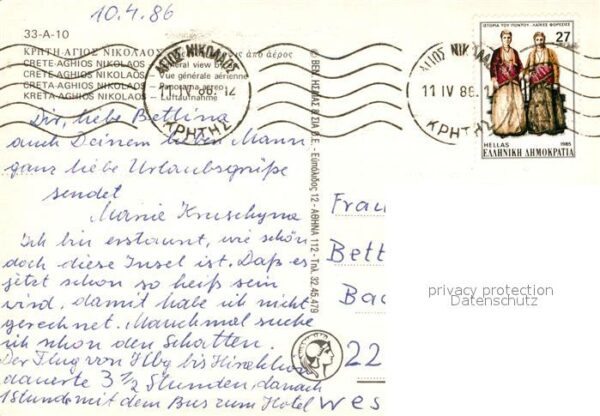 10.4.86
33-A-10
ΚΡΗΤΗ-ΑΓΙΟΣ ΝΙΚΟΛΑΟΣ
ἀπό ἀέρος
CRETE-AGHIOS NIKOLAOS
CRETE-AGHIOS NIKOLAOS – Vue générale aérienne
CRETA-AGHIOS NIKOLAOS – Panorama aereo
KRETA-AGHIOS NIKOLAOS – Luftaufnahme
ΑΓΙΟΣ ΝΙΚΟΛΑΟΣ
11 IV 86. 12
ΚΡΗΤΗΣ
ΑΓΙΟΣ ΝΙΚΟΛΑ
11 IV 86. 1
ΚΡΗΤΗΣ
ΙΣΤΟΡΙΑ ΤΟΥ ΠΟΝΤΟΥ - ΛΑΪΚΕΣ ΦΟΡΕΣΙΕΣ
27
HELLAS 1985
ΕΛΛΗΝΙΚΗ ΔΗΜΟΚΡΑΤΙΑ
Dir, liebe Bettina
auch Deinem lieben Mann
ganz liebe Urlaubsgrüße
sendet
Ich bin erstaunt, wie schön
doch diese Insel ist. Daß es
jetzt schon so heiß sein
wird, damit habe ich nicht
gerechnet. Manchmal suche
ich schon den Schatten.
Der Flug von Hbg bis
dauerte 3 1/2 Stunden, danach
1 Stunde mit dem Bus zum Hotel
ΑΘΗΝΑ 112 - Τηλ. 32.45.479
Frau
Bett
Ba
22
Wes
privacy protection
Datenschutz